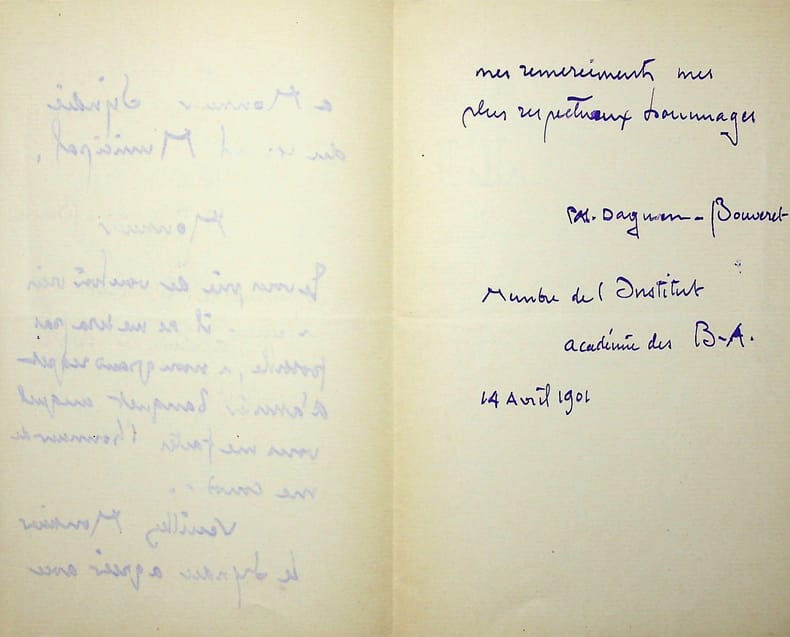 a Monsieur Syndic
du Municipal,
Monsieur
Je vous prie de vouloir bien
il ne me sera pas
possible, à mon grand regret
d'assister banquet auquel
vous me faites l'honneur de
me
Veuillez Monsieur
le Syndic agréer avec
mes remerciments mes
plus respectueux hommages
PAJ. Dagnan-Bouveret
Membre de l'Institut
académie des B-A.
14 Avril 1901